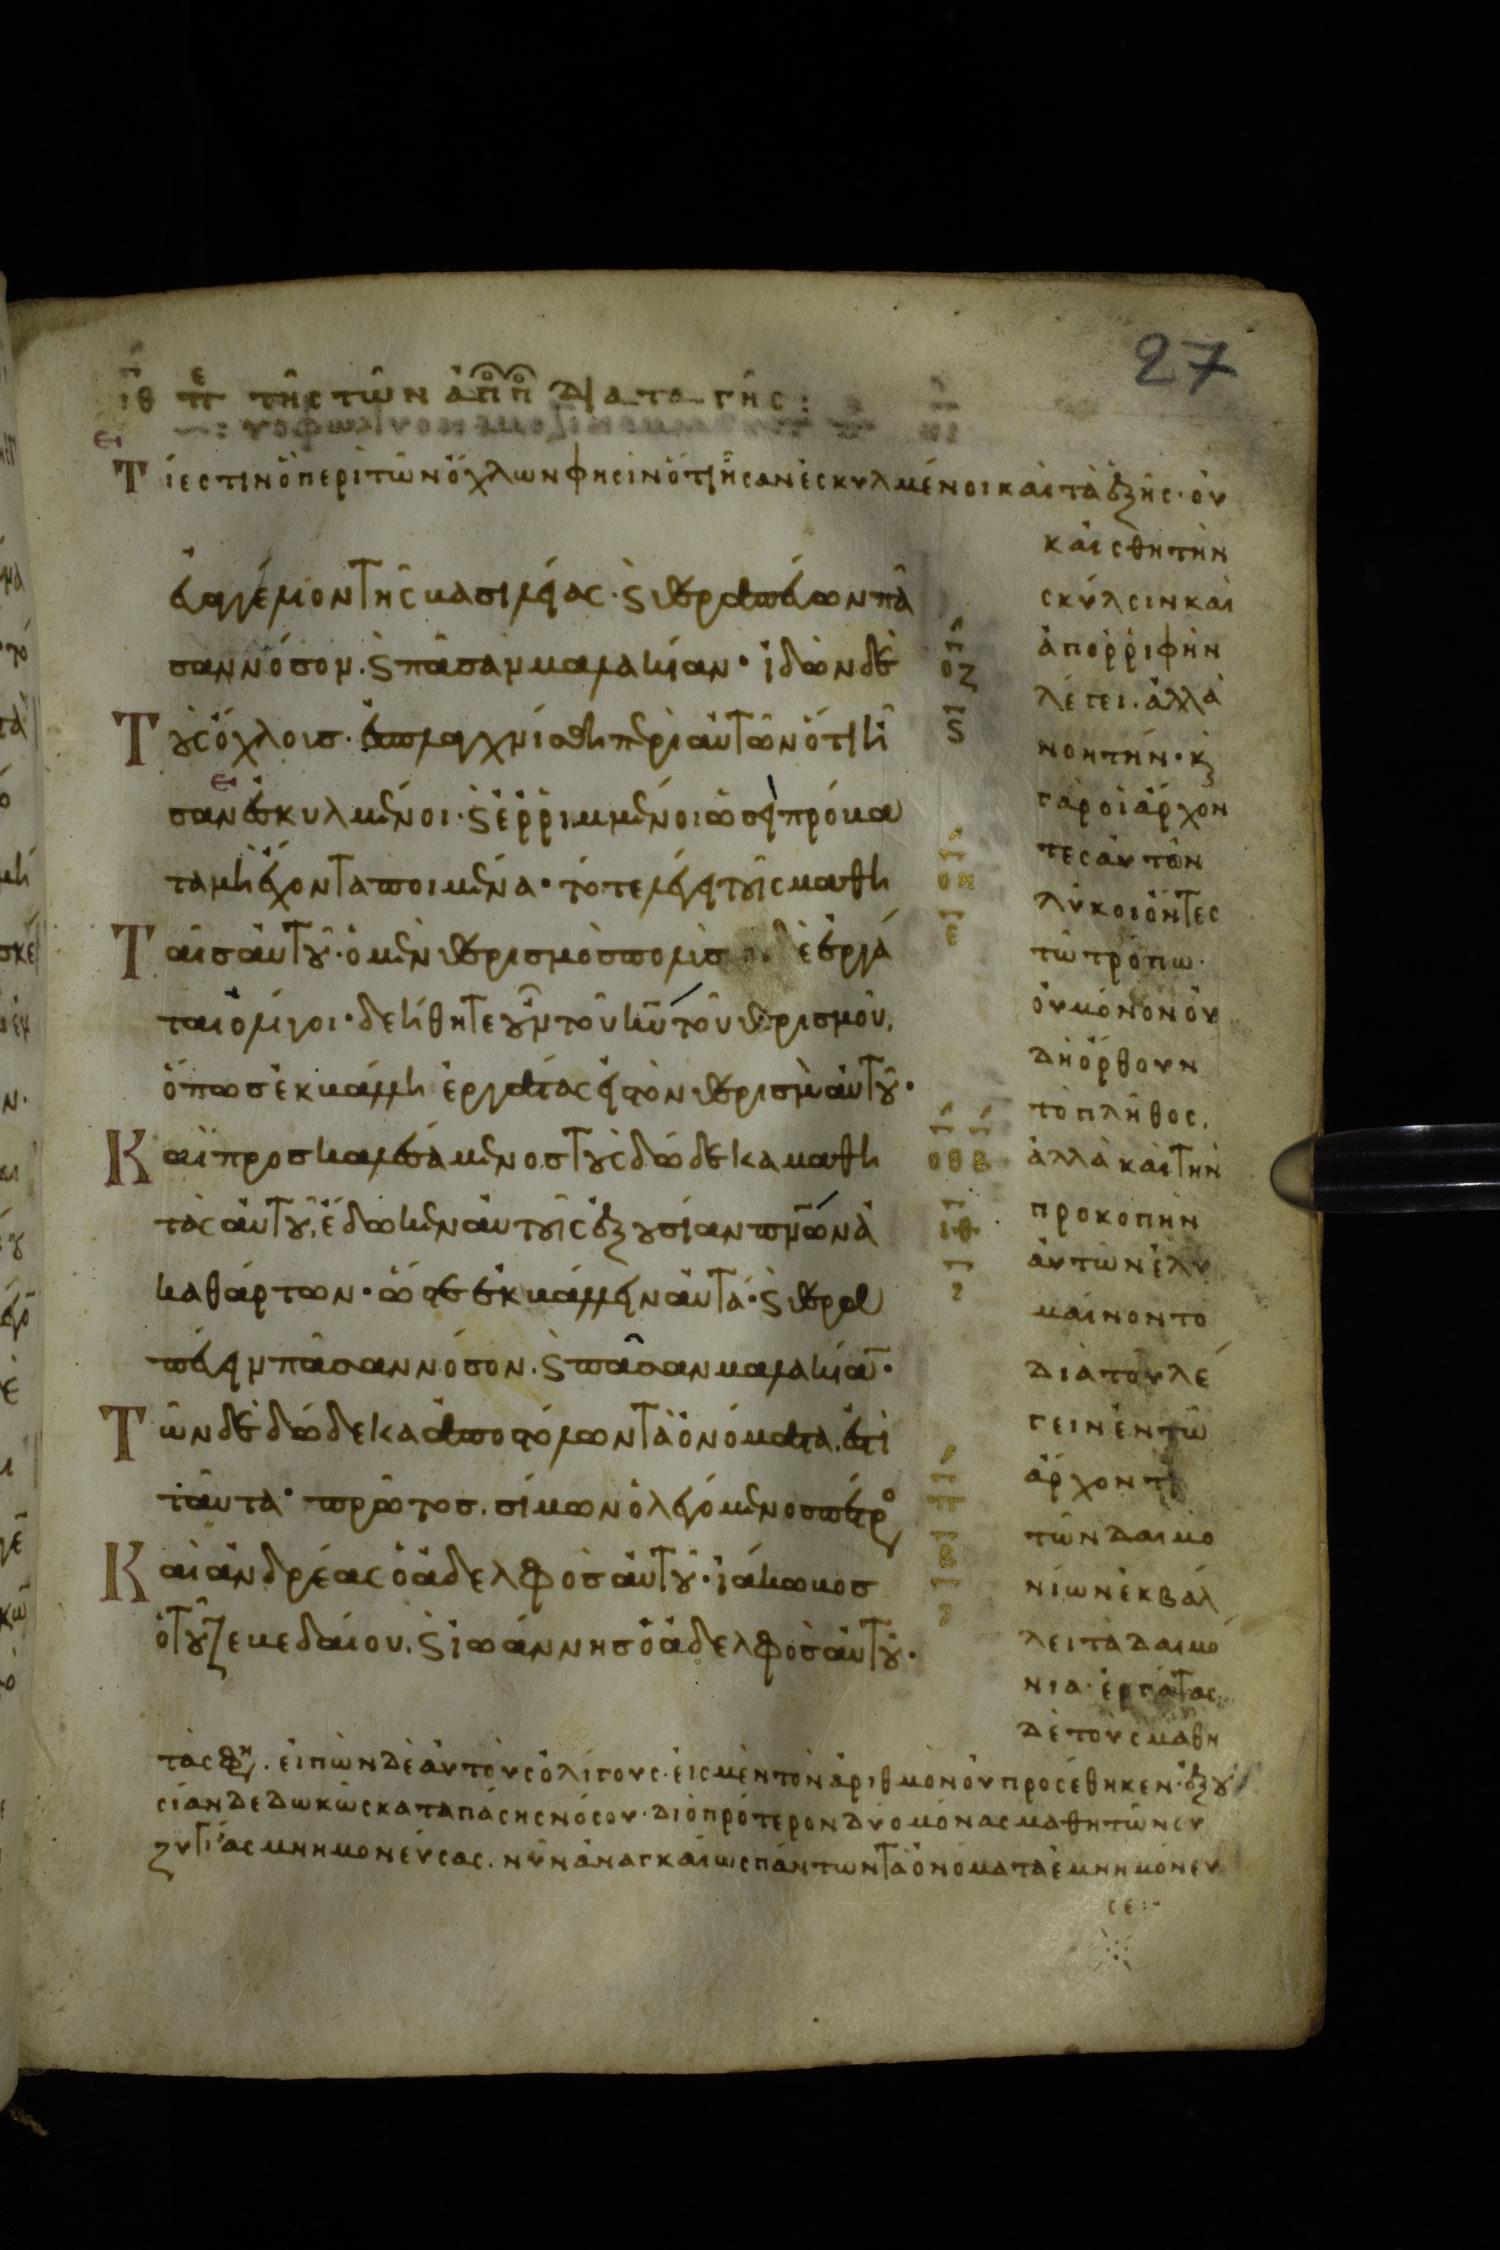 27
ιθ πε τῆς τῶν ἀπο διαταγῆς:
Τί ἐστιν ὃ περὶ τῶν ὄχλων φησὶν ὅτι ἦσαν ἐσκυλμένοι καὶ τὰ ἑξῆς· οὐ
εὐαγγέλιον τῆς βασιλείας· ϛ θεραπεύων πᾶ
σαν νόσον· ϛ πᾶσαν μαλακίαν· ἰδὼν δὲ
Τοὺς ὄχλους· ἐσπλαγχνίσθη περὶ αὐτῶν ὅτι ἦ
σαν ἐσκυλμένοι· ϛ ἐρριμμένοι ὡσεὶ πρόβα
τα μὴ ἔχοντα ποιμένα· τότε λέγει τοῖς μαθη
Ταῖς αὐτοῦ· ὁ μὲν θερισμὸς πολὺς οἱ δὲ ἐργά
ται ὀλίγοι· δεήθητε οὖν τοῦ κυ τοῦ θερισμοῦ,
ὅπως ἐκβάλλη ἐργάτας εἰς τὸν θερισμὸν αὐτοῦ·
Καὶ προσκαλεσάμενος τοὺς δώδεκα μαθη
τὰς αὐτοῦ, ἔδωκεν αὐτοῖς ἐξουσίαν πνων ἀ
καθάρτων· ὥστε ἐκβάλλειν αὐτά· ϛ θερα
πεύειν πᾶσαν νόσον· ϛ πᾶσαν μαλακίαν·
Τῶν δὲ δώδεκα ἀποστόλων τὰ ὀνόματα, ἐστὶ
ταῦτα· πρῶτος, σίμων ὁ λεγόμενος πέτρο
Καὶ ἀνδρέας ὁ ἀδελφὸς αὐτοῦ· ἰάκωβος
ὁ τοῦ ζεβεδαίου, ϛ ἰωάννης ὁ ἀδελφὸς αὐτοῦ·
οζ
ϛ
οη
ε
οθ β
ιθ
π
β
κ αἰσθητὴν
σκύλσιν καὶ
ἀπορριφὴν
λέγει· ἀλλὰ
νοητήν· κ
γὰρ οἱ ἄρχον
τες αὐτῶν
λύκοι ὄντες
τῶ τρόπω·
οὐ μόνον οὐ
διόρθουν
τὸ πλῆθος,
ἀλλὰ καὶ τὴν
προκοπὴν
αὐτῶν ἐλυ
μαίνοντο
διὰ τοῦ λέ
γειν ἐν τῶ
ἄρχοντι
τῶν δαιμο
νίων ἐκβάλ
λει τὰ δαιμό
νια· ἐργάτας
δὲ τοὺς μαθη
τάς φη. εἰπὼν δὲ αὐτοὺς ὀλίγους· εἰς μὲν τὸν ἀριθμὸν οὐ προσέθηκεν· ἐξου
σίαν δεδωκὼς κατὰ πάσης νόσου· διὸ πρότερον δύο μόνας μαθητῶν συ
ζυγίας μνημονεύσας. νῦν ἀναγκαίως πάντων τὰ ὀνόματα ἐμνημόνευ
σε: